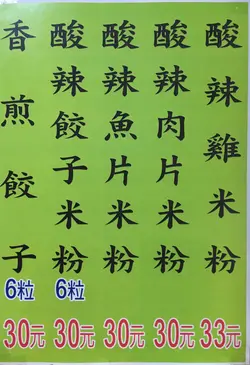 酸辣雞米粉
33元
酸辣肉片米粉
30元
酸辣魚片米粉
30元
酸辣餃子米粉
6粒
30元
香煎餃子
6粒
30元